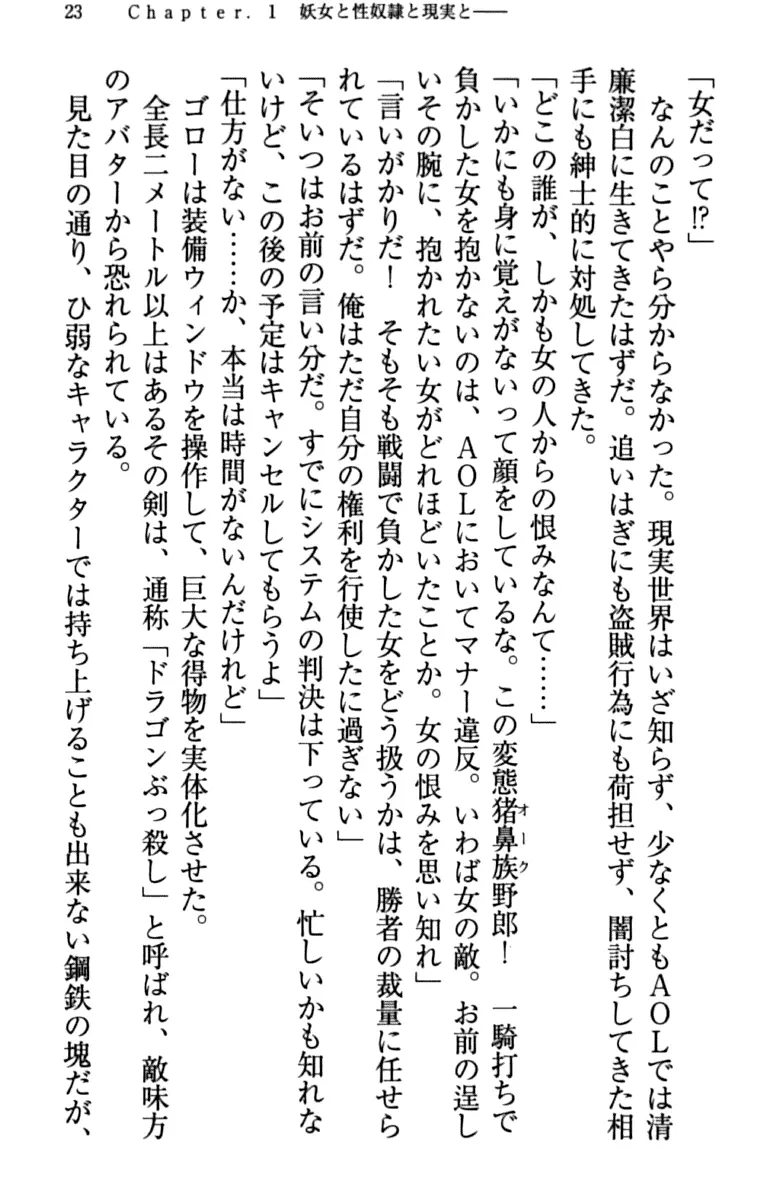 23　Chapter. 1　妖女と性奴隷と現実と――
「女だって!?」
　なんのことやら分からなかった。現実世界はいざ知らず、少なくともAOLでは清
廉潔白に生きてきたはずだ。追いはぎにも盗賊行為にも荷担せず、闇討ちしてきた相
手にも紳士的に対処してきた。
「どこの誰が、しかも女の人からの恨みなんて……」
「いかにも身に覚えがないって顔をしているな。この変態猪鼻族野郎！　一騎打ちで
オーク
負かした女を抱かないのは、AOLにおいてマナー違反。いわば女の敵。お前の逞し
いその腕に、抱かれたい女がどれほどいたことか。女の恨みを思い知れ」
「言いがかりだ！　そもそも戦闘で負かした女をどう扱うかは、勝者の裁量に任せら
れているはずだ。俺はただ自分の権利を行使したに過ぎない」
「そいつはお前の言い分だ。すでにシステムの判決は下っている。忙しいかも知れな
いけど、この後の予定はキャンセルしてもらうよ」
「仕方がない……か、本当は時間がないんだけれど」
　ゴローは装備ウィンドウを操作して、巨大な得物を実体化させた。
　全長二メートル以上はあるその剣は、通称「ドラゴンぶっ殺し」と呼ばれ、敵味方
のアバターから恐れられている。
　見た目の通り、ひ弱なキャラクターでは持ち上げることも出来ない鋼鉄の塊だが、